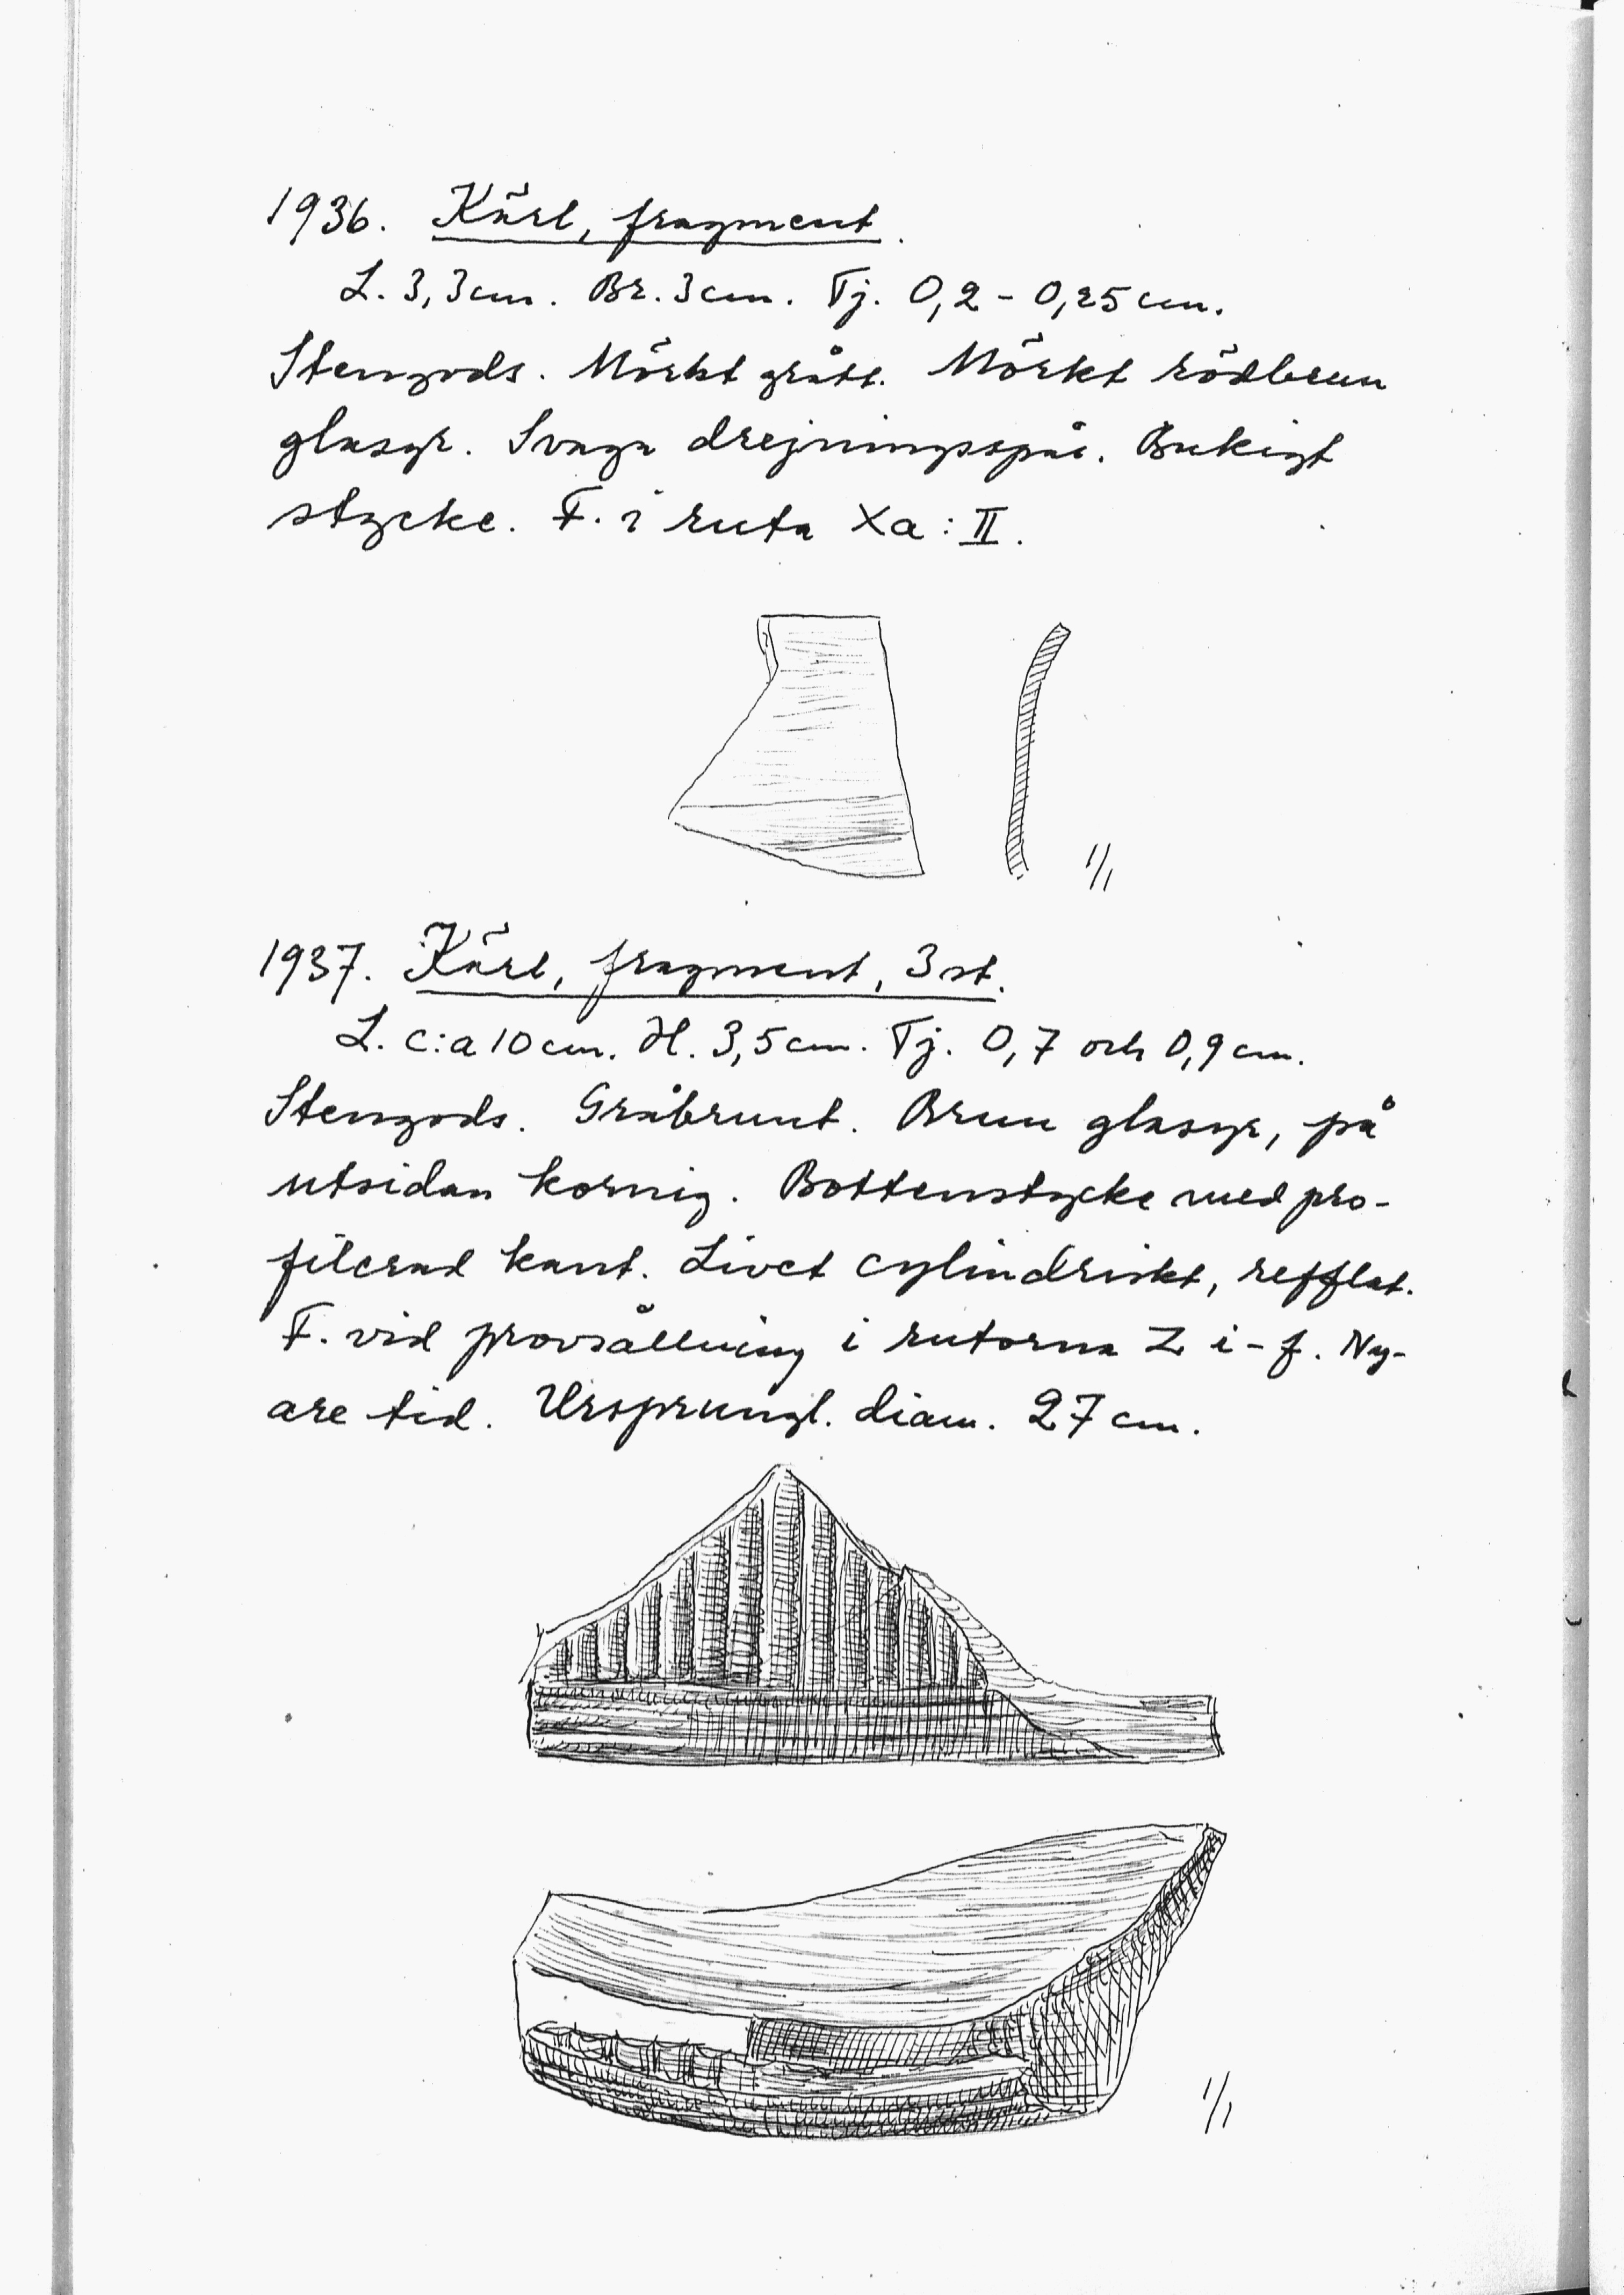 1936. Kärl, fragment.
L. 3,3 cm. Br. 3 cm. Tj. 0,2 - 0,25 cm.
Stengods. Mörkt grått. Mörkt rödbrun
glasyr. Svaga drejningsspår. Bukigt
stycke. F. i ruta Xa : II.
1/1
1937. Kärl, fragment, 3 st.
L. c:a 10 cm. H. 3,5 cm. Tj. 0,7 och 0,9 cm.
Stengods. Gråbrunt. Brun glasyr, på
utsidan kornig. Bottenstycke med pro-
filerad kant. Livet cylindriskt, refflat.
F. vid provsållning i rutorna Z i - f. Ny-
are tid. Ursprungl. diam. 27 cm.
1/1